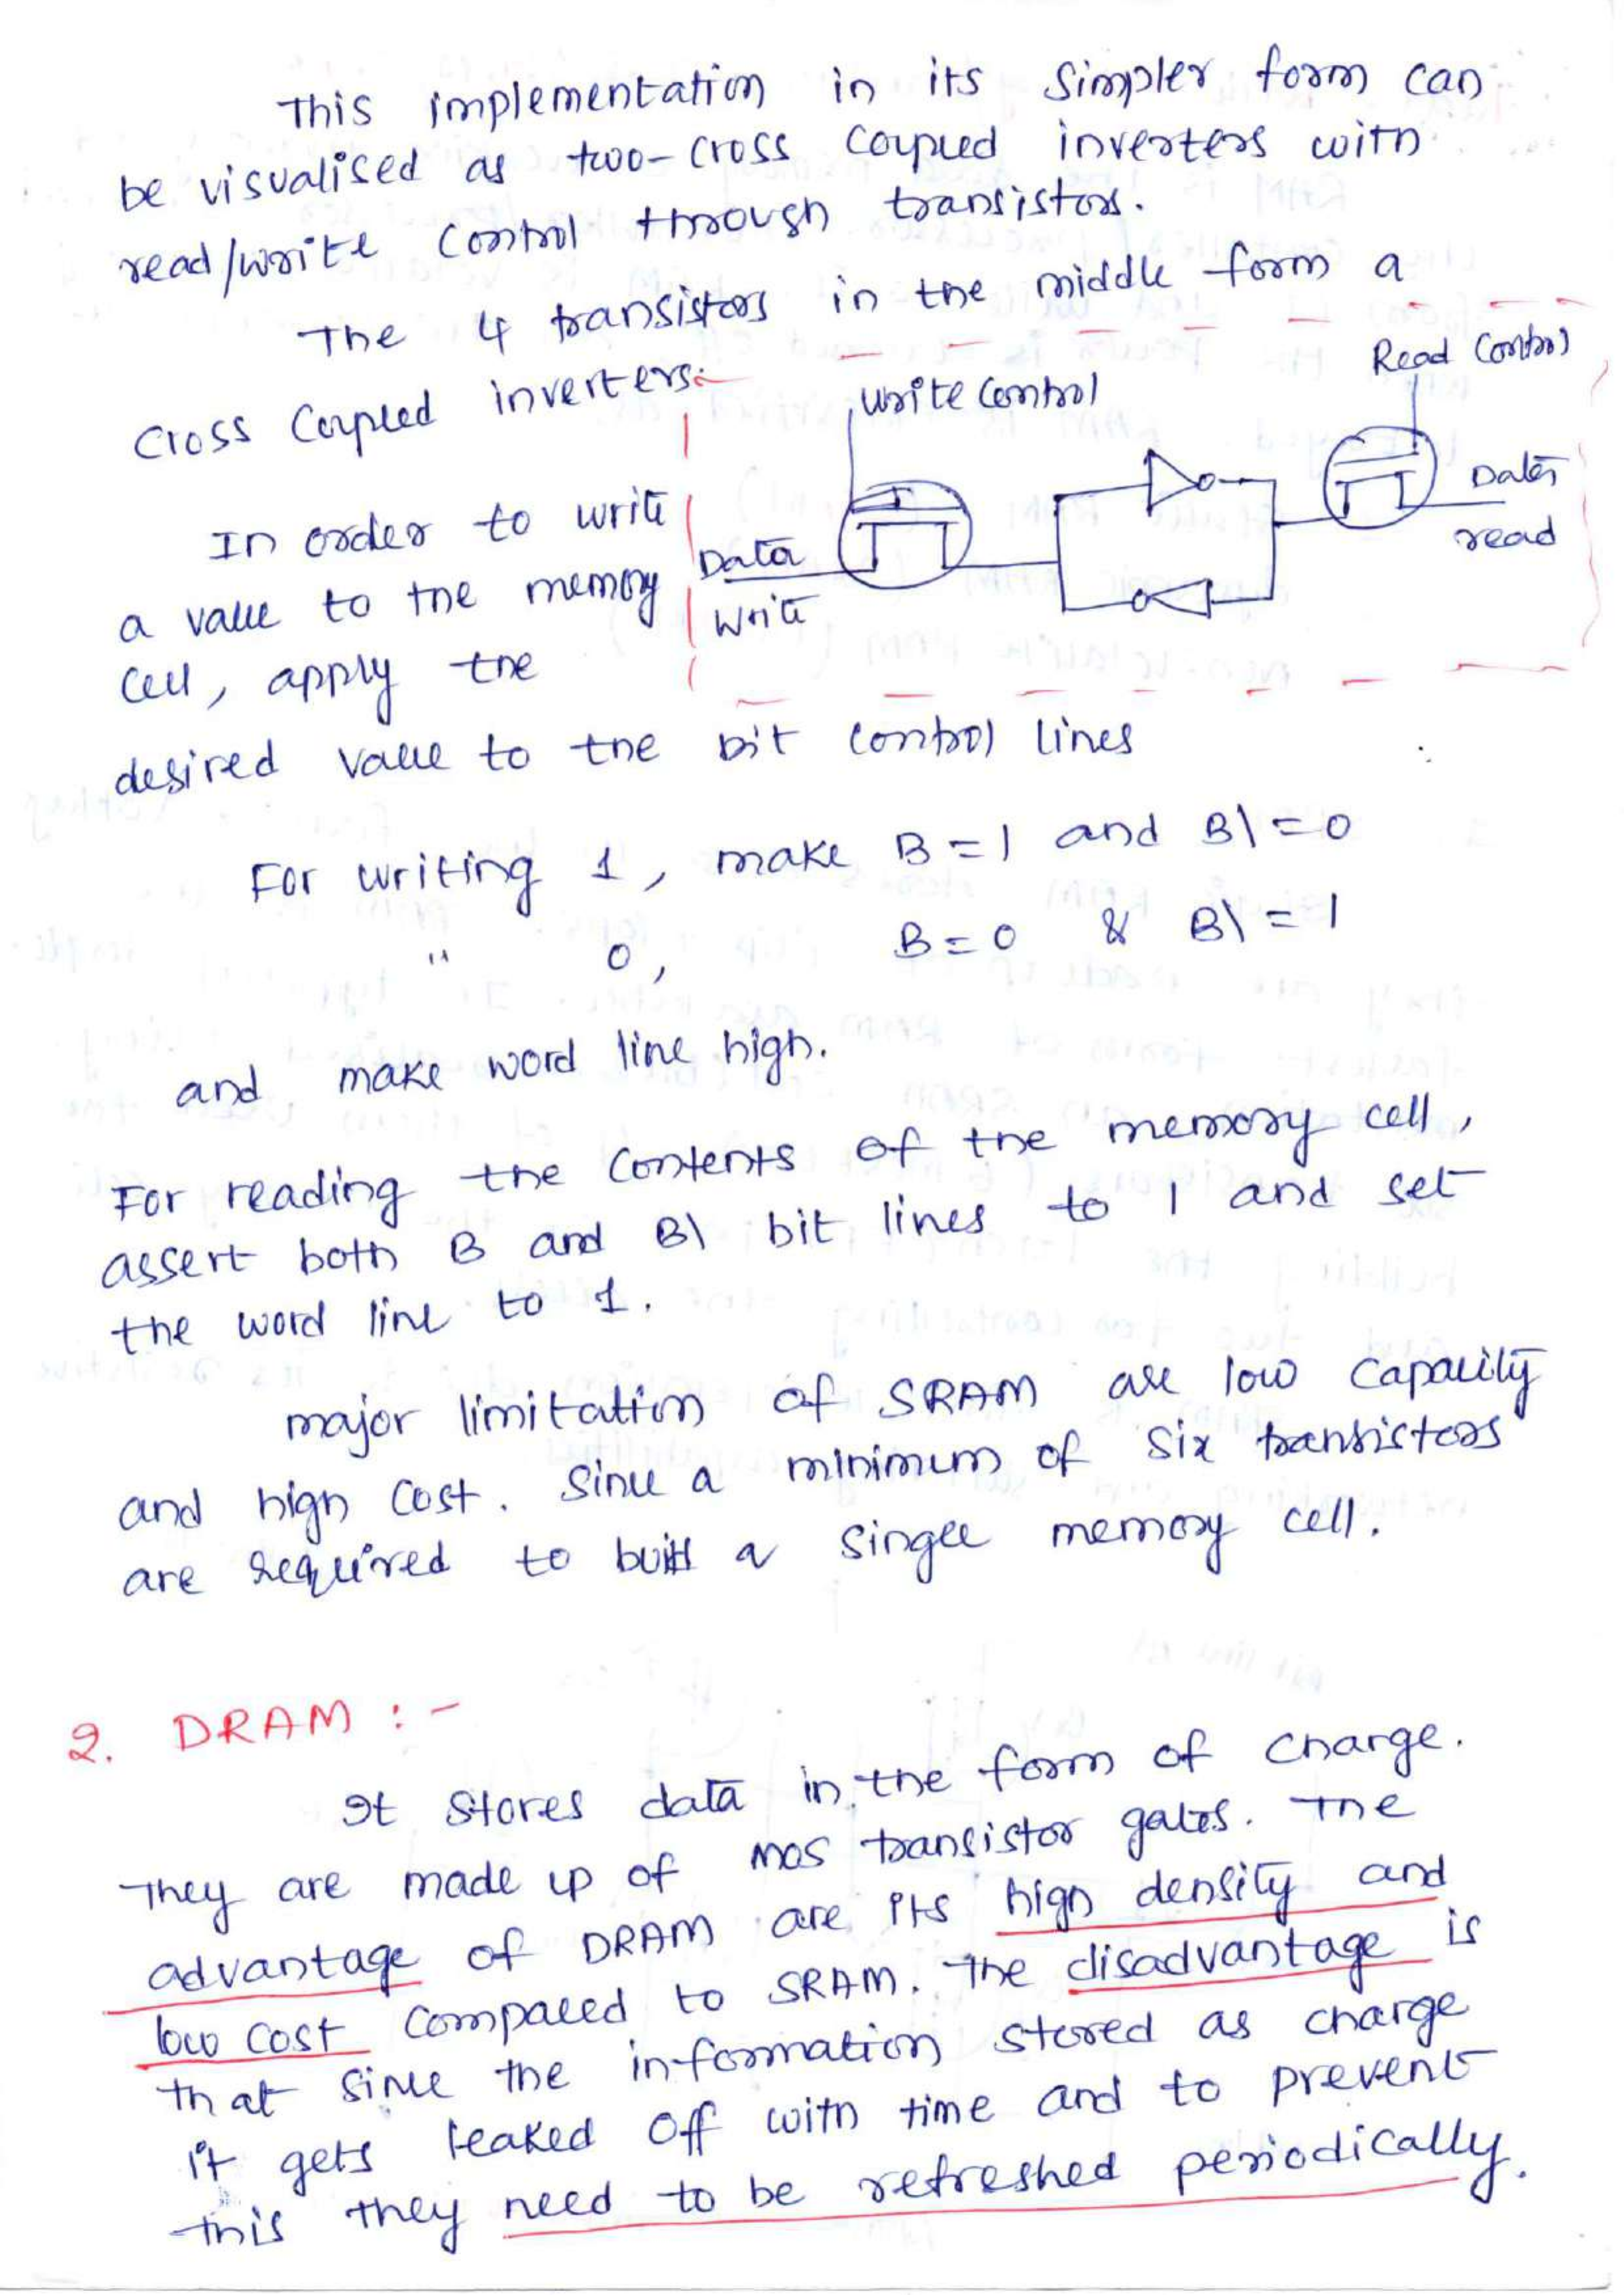 This implementation in its simpler form can
be visualised as two-cross coupled inverters with
read/write control through transistors.
The 4 transistors in the middle form a
cross coupled inverters.
Write Control
Read Control
Data
Write
Data
read
In order to write
a value to the memory
cell, apply the
desired value to the bit control lines
For writing 1, make B = 1 and B\ = 0
" 0, B = 0 & B\ = 1
and make word line high.
For reading the contents of the memory cell,
assert both B and B\ bit lines to 1 and set
the word line to 1.
major limitation of SRAM are low capacity
and high cost. Since a minimum of six transistors
are required to built a single memory cell.
2. DRAM : -
It stores data in the form of charge.
They are made up of MOS transistor gates. The
advantage of DRAM are its high density and
low cost compared to SRAM. The disadvantage is
that since the information stored as charge
it gets leaked off with time and to prevent
this they need to be refreshed periodically.